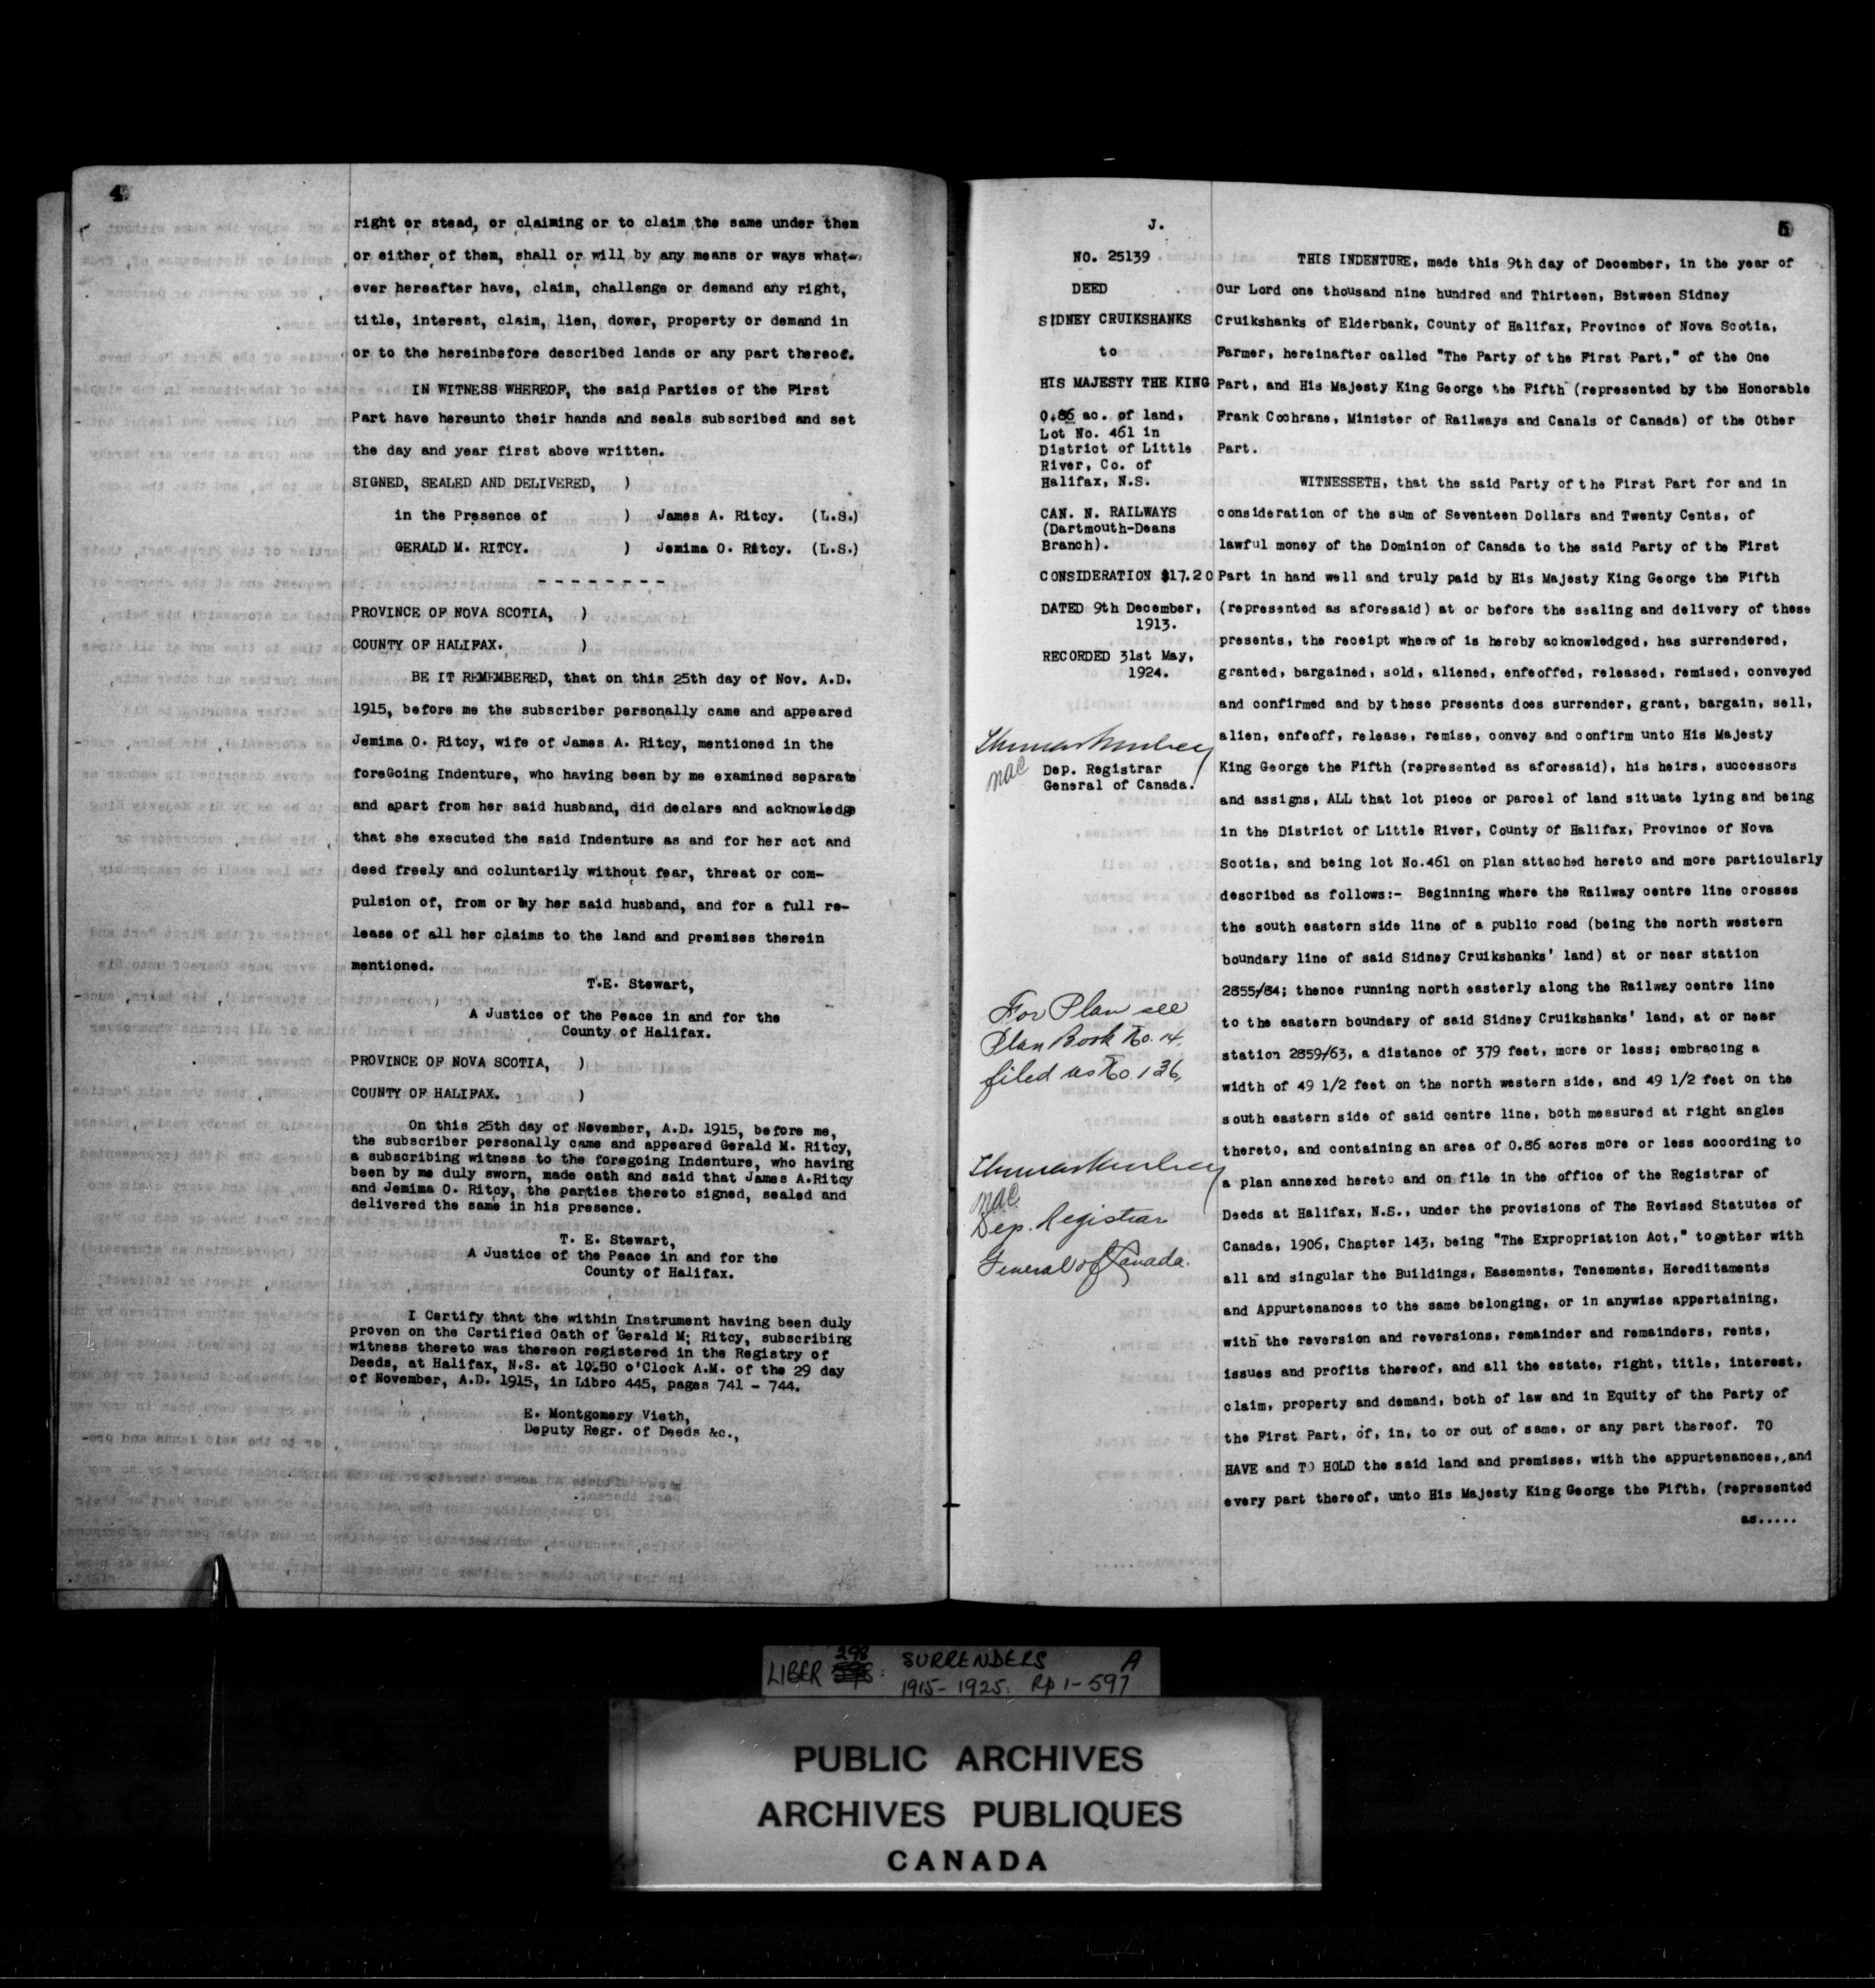 4
right or stead, or claiming or to claim the same under them
or either of them, shall or will by any means or ways what-
ever hereafter have, claim, challenge or demand any right,
title, interest, claim, lien, dower, property or demand in
or to the hereinbefore described lands or any part thereof.
IN WITNESS WHEREOF, the said Parties of the First
Part have hereunto their hands and seals subscribed and set
the day and year first above written.
SIGNED, SEALED AND DELIVERED, )
in the Presence of ) James A. Ritcy. (L.S.)
GERALD M. RITCY. ) Jemima O. Ritcy. (L.S.)
- - - - - - - -
PROVINCE OF NOVA SCOTIA, )
COUNTY OF HALIFAX. )
BE IT REMEMBERED, that on this 25th day of Nov. A.D.
1915, before me the subscriber personally came and appeared
Jemima O. Ritcy, wife of James A. Ritcy, mentioned in the
foreGoing Indenture, who having been by me examined separate
and apart from her said husband, did declare and acknowledge
that she executed the said Indenture as and for her act and
deed freely and coluntarily without fear, threat or com-
pulsion of, from or by her said husband, and for a full re-
lease of all her claims to the land and premises therein
mentioned.
T.E. Stewart,
A Justice of the Peace in and for the
County of Halifax.
PROVINCE OF NOVA SCOTIA, )
COUNTY OF HALIFAX. )
On this 25th day of November, A.D. 1915, before me,
the subscriber personally came and appeared Gerald M. Ritcy,
a subscribing witness to the foregoing Indenture, who having
been by me duly sworn, made oath and said that James A.Ritcy
and Jemima O. Ritcy, the parties thereto signed, sealed and
delivered the same in his presence.
T. E. Stewart,
A Justice of the Peace in and for the
County of Halifax.
I Certify that the within Instrument having been duly
proven on the Certified Oath of Gerald M; Ritcy, subscribing
witness thereto was thereon registered in the Registry of
Deeds, at Halifax, N.S. at 10.50 o'Clock A.M. of the 29 day
of November, A.D. 1915, in Libro 445, pages 741 - 744.
E. Montgomery Vieth,
Deputy Regr. of Deeds &c.,
5
J.
NO. 25139
DEED
SIDNEY CRUIKSHANKS
to
HIS MAJESTY THE KING
0.86 ac. of land,
Lot No. 461 in
District of Little
River, Co. of
Halifax, N.S.
CAN. N. RAILWAYS
(Dartmouth-Deans
Branch).
CONSIDERATION $17.20
DATED 9th December,
1913.
RECORDED 31st May,
1924.
Thomas Mulvey
mac
Dep. Registrar
General of Canada.
For Plan see
Plan Book No. 14,
filed as No. 136,
Thomas Mulvey
mac
Dep. Registrar
General of Canada.
THIS INDENTURE, made this 9th day of December, in the year of
Our Lord one thousand nine hundred and Thirteen, Between Sidney
Cruikshanks of Elderbank, County of Halifax, Province of Nova Scotia,
Farmer, hereinafter called "The Party of the First Part," of the One
Part, and His Majesty King George the Fifth (represented by the Honorable
Frank Cochrane, Minister of Railways and Canals of Canada) of the Other
Part.
WITNESSETH, that the said Party of the First Part for and in
consideration of the sum of Seventeen Dollars and Twenty Cents, of
lawful money of the Dominion of Canada to the said Party of the First
Part in hand well and truly paid by His Majesty King George the Fifth
(represented as aforesaid) at or before the sealing and delivery of these
presents, the receipt whereof is hereby acknowledged, has surrendered,
granted, bargained, sold, aliened, enfeoffed, released, remised, conveyed
and confirmed and by these presents does surrender, grant, bargain, sell,
alien, enfeoff, release, remise, convey and confirm unto His Majesty
King George the Fifth (represented as aforesaid), his heirs, successors
and assigns, ALL that lot piece or parcel of land situate lying and being
in the District of Little River, County of Halifax, Province of Nova
Scotia, and being lot No.461 on plan attached hereto and more particularly
described as follows:- Beginning where the Railway centre line crosses
the south eastern side line of a public road (being the north western
boundary line of said Sidney Cruikshanks' land) at or near station
2855/84; thence running north easterly along the Railway centre line
to the eastern boundary of said Sidney Cruikshanks' land, at or near
station 2859/63, a distance of 379 feet, more or less; embracing a
width of 49 1/2 feet on the north western side, and 49 1/2 feet on the
south eastern side of said centre line, both measured at right angles
thereto, and containing an area of 0.86 acres more or less according to
a plan annexed hereto and on file in the office of the Registrar of
Deeds at Halifax, N.S., under the provisions of The Revised Statutes of
Canada, 1906, Chapter 143, being "The Expropriation Act," together with
all and singular the Buildings, Easements, Tenements, Hereditaments
and Appurtenances to the same belonging, or in anywise appertaining,
with the reversion and reversions, remainder and remainders, rents,
issues and profits thereof, and all the estate, right, title, interest,
claim, property and demand, both of law and in Equity of the Party of
the First Part, of, in, to or out of same, or any part thereof. TO
HAVE and TO HOLD the said land and premises, with the appurtenances, and
every part thereof, unto His Majesty King George the Fifth, (represented
as.....
LIBER 298: SURRENDERS A
1915-1925: Pp 1-597
PUBLIC ARCHIVES
ARCHIVES PUBLIQUES
CANADA